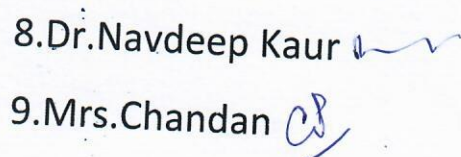 8.Dr.Navdeep Kaur
9.Mrs.Chandan